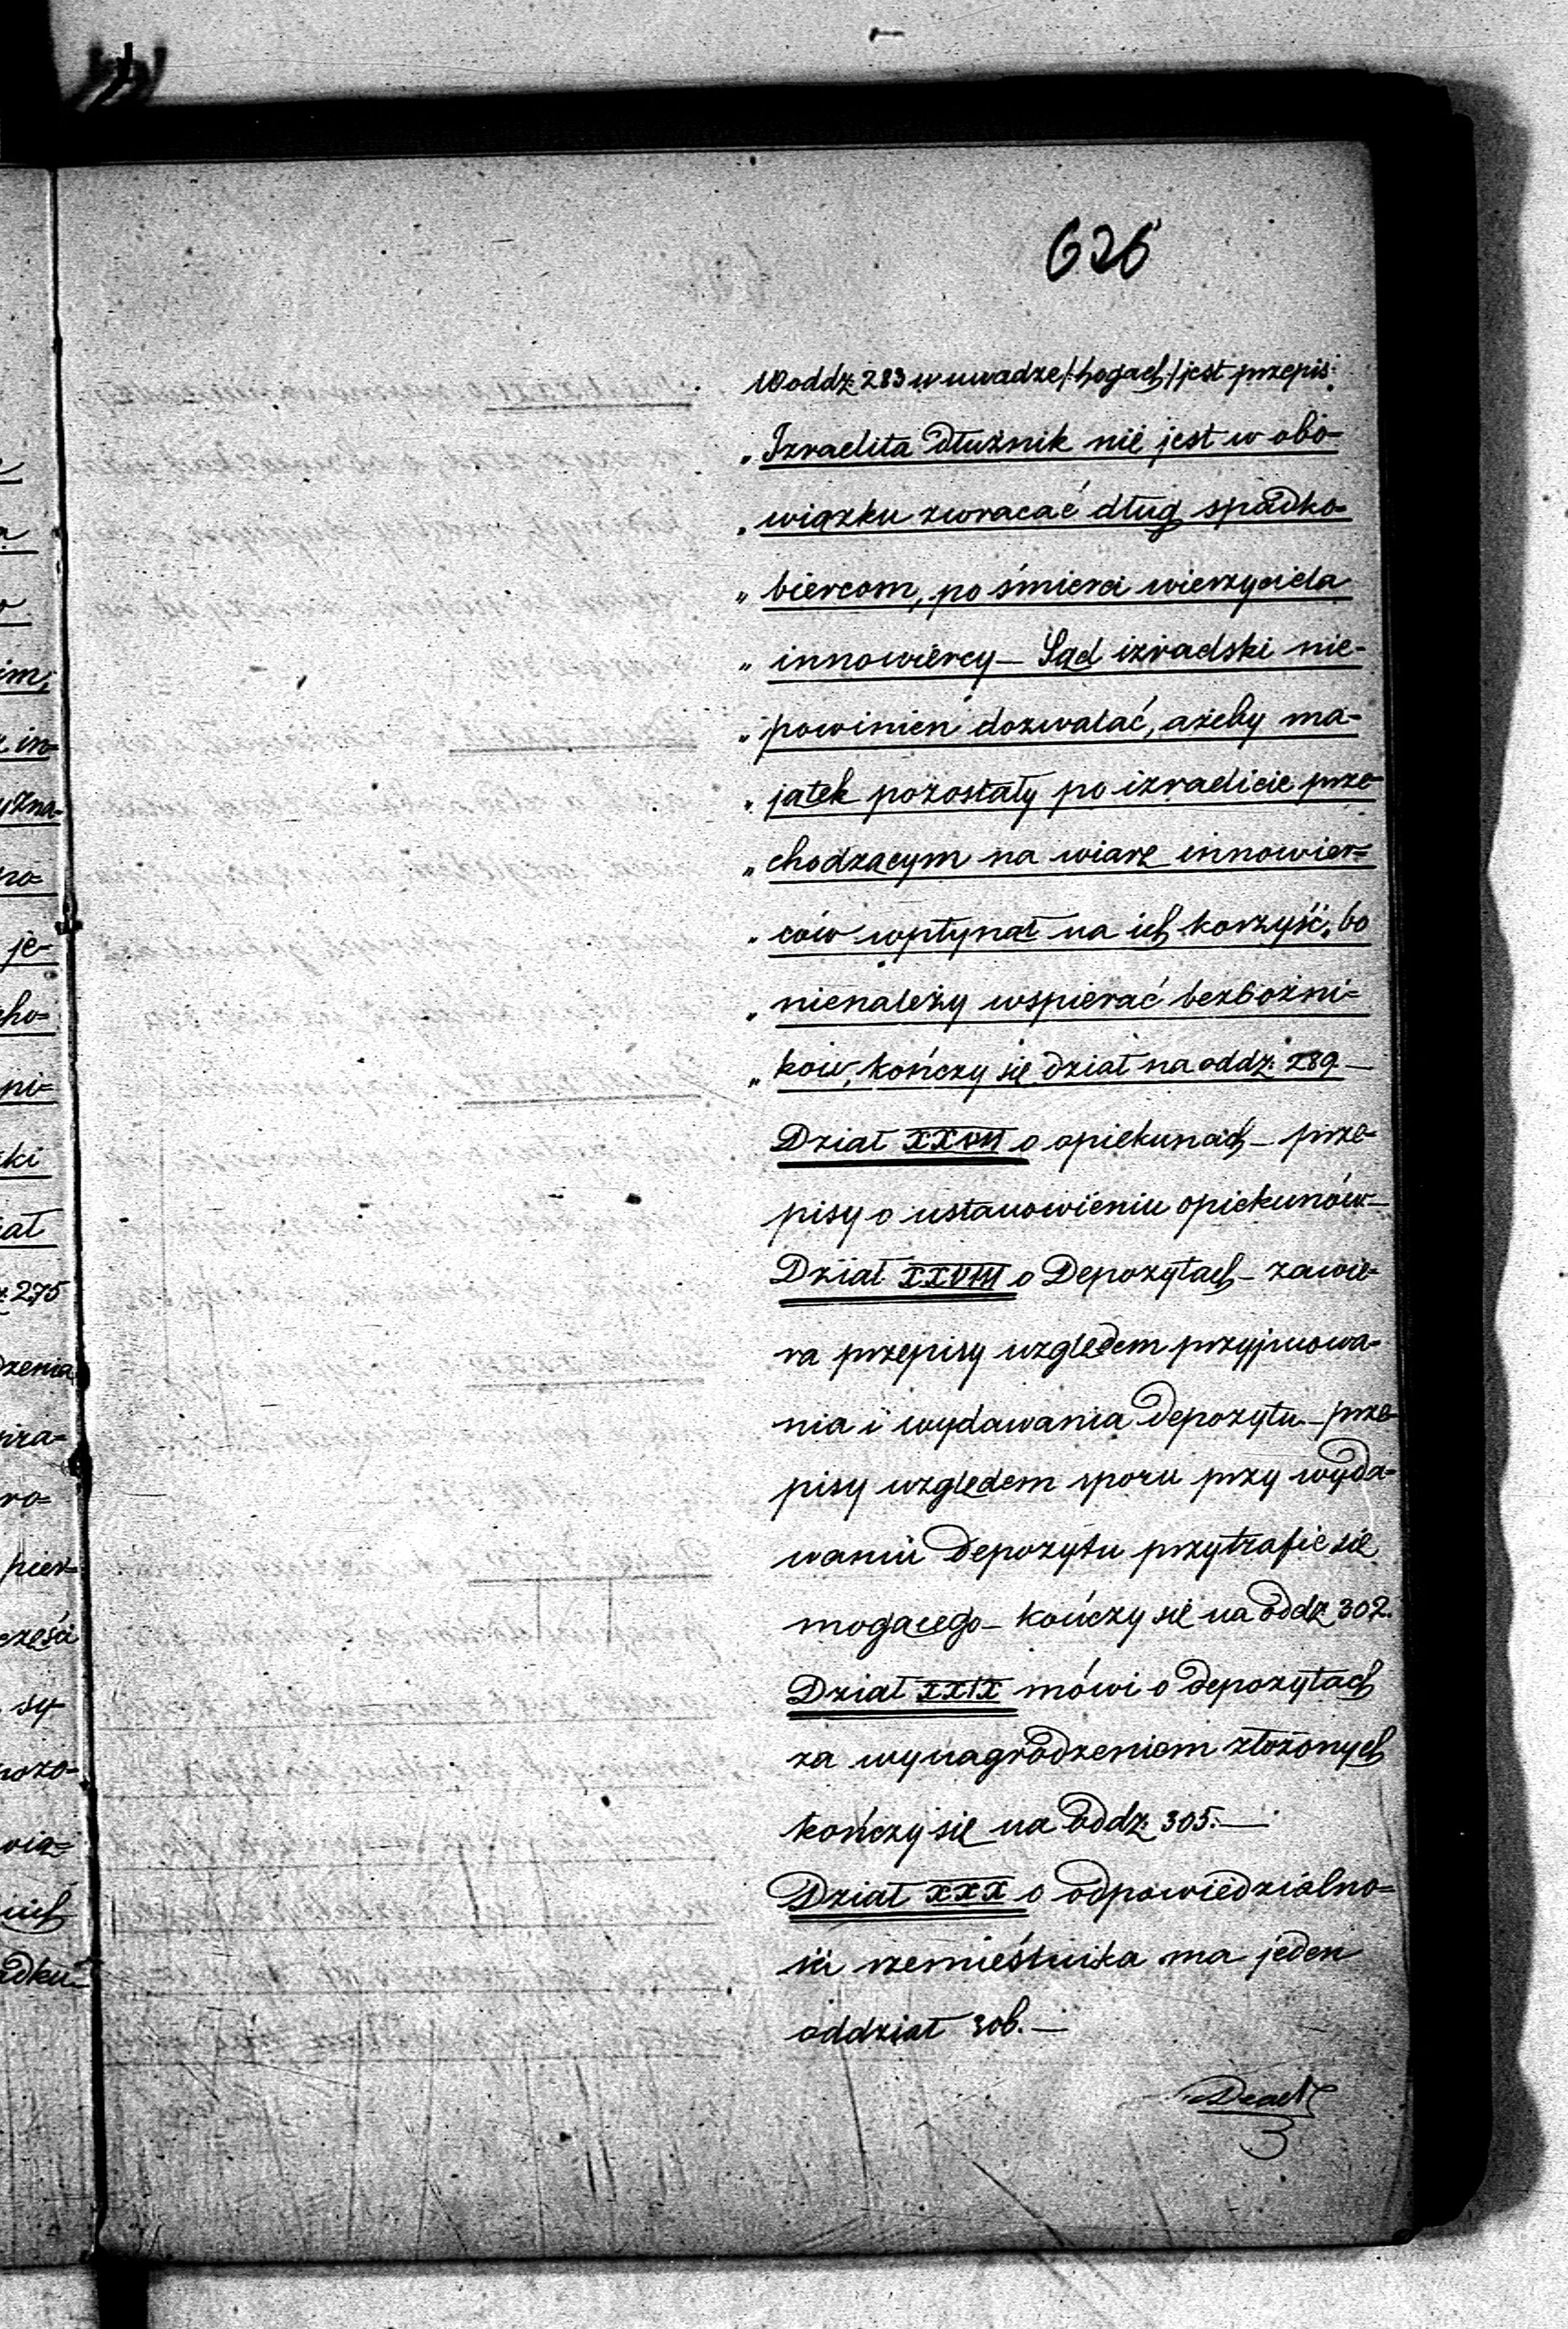 626
W oddz: 283 w uwadze /:hogach:/ jest przepis:
„ Izraelita dłużnik nie jest w obo-
„ wiązku zwracać dług spadko-
„ biercom, po śmierci wierzyciela
„ innowiercy – Sąd izraelski nie-
„ powinien dozwalać, ażeby ma-
„ jątek pozostały po izraelicie prze-
„ chodzącym na wiarę innowier=
„ ców wpłynął na ich korzyść, bo
„ nienależy wspierać bezbożni=
„ ków, kończy się dział na oddz: 289. –
Dział XXVII o opiekunach – prze-
pisy o ustanowieniu opiekunów –
Dział XXVIII o Depozytach – zawie-
ra przepisy względem przyjmowa-
nia i wydawania depozytu – prze-
pisy względem sporu przy wyda-
waniu depozytu przytrafić się
mogącego – kończy się na oddz 302.
Dział XXIX mówi o depozytach
za wynagrodzeniem złożonych
kończy się na oddz: 305. –
Dział XXX o odpowiedzialno=
ści rzemieślnika ma jeden
oddział 306. –
im,
in=
yzna-
no=
je-
cho=
pi=
ki
ał
275
dzenia
ro=
pier=
części
sy
pozo=
wią=
nich
adku